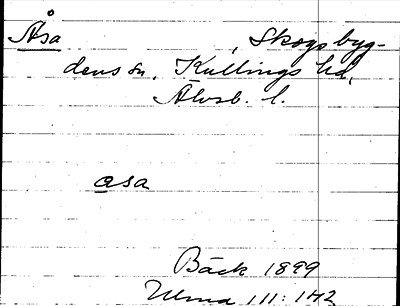 Åsa , Skogsbyg-
dens sn, Kullings hd,
Älvsb. l.
asa
Bäck 1899
Ulma 111:142